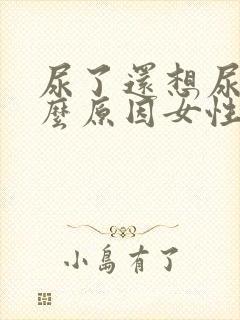 尿了還想尿
麼原因女性
小島有了